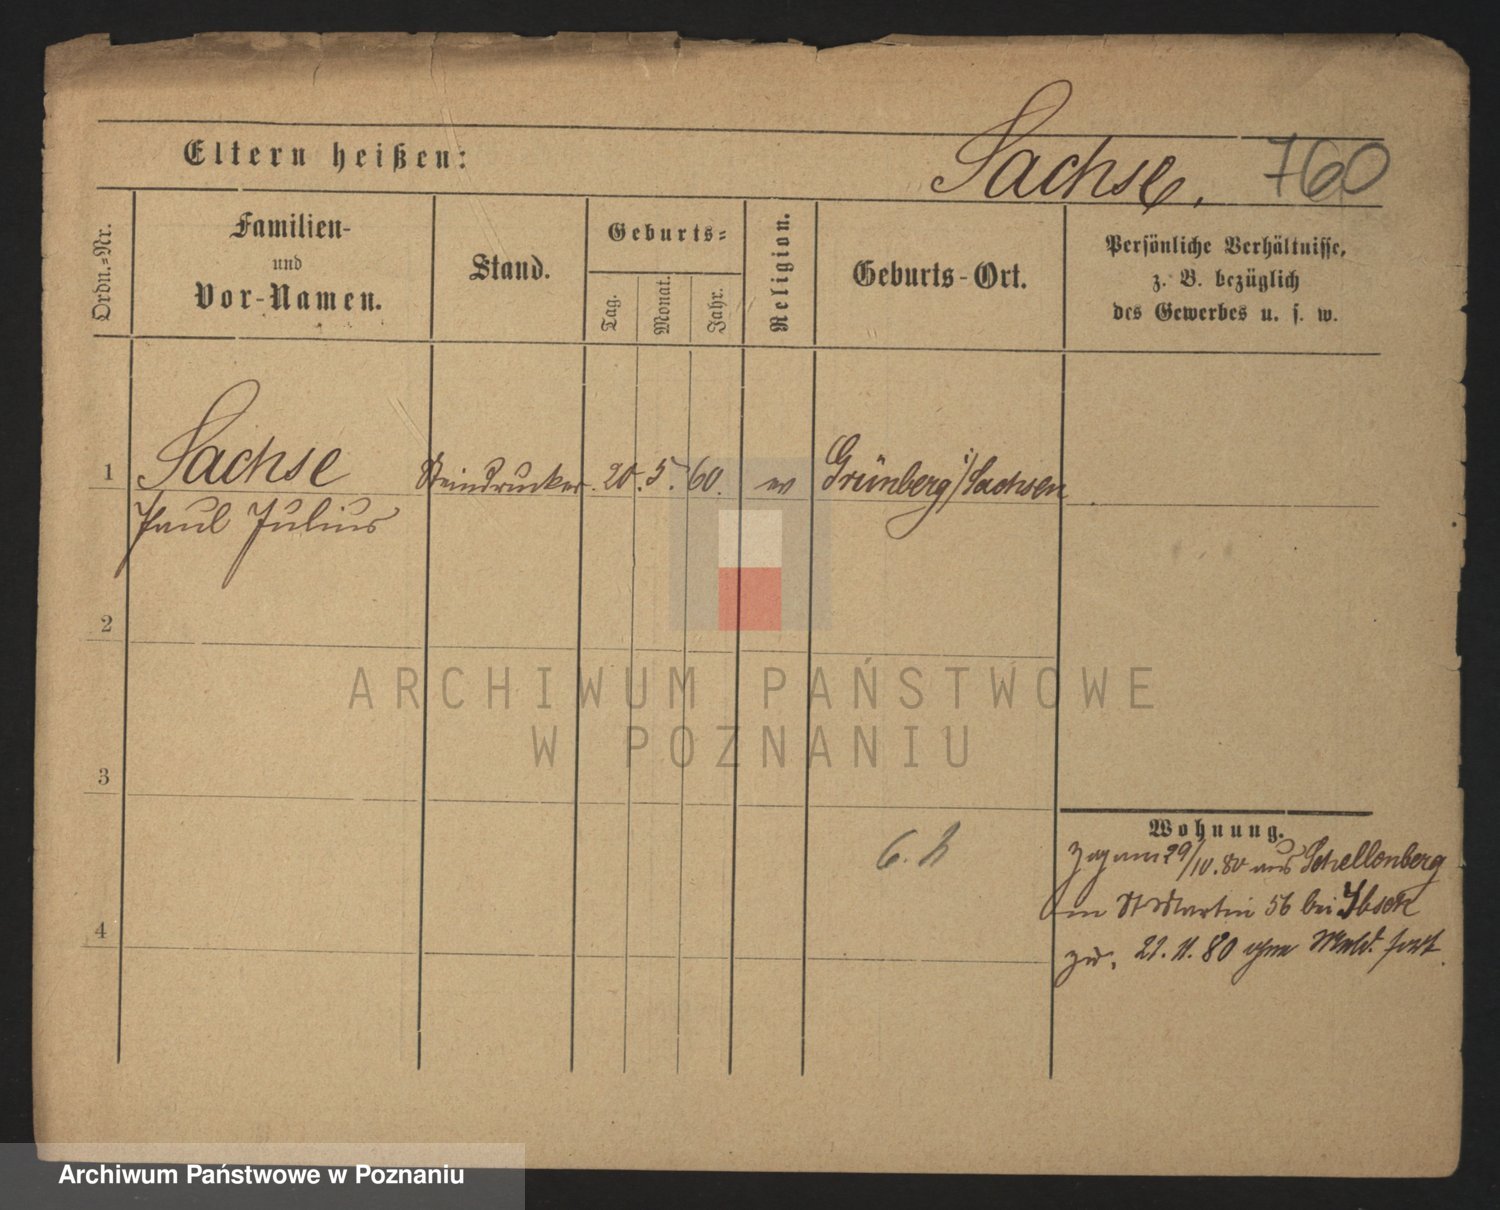 Eltern heißen:
Sachse. 760
Ordn.-Nr.
Familien-
und
Vor-Namen.
Stand.
Geburts-
Tag.
Monat.
Jahr.
Religion.
Geburts-Ort.
Persönliche Verhältnisse,
z. B. bezüglich
des Gewerbes u. s. w.
1 Sachse Steindrucker. 20. 5. 60. ev Grünberg i/Sachsen
Paul Julius
2
ARCHIWUM PAŃSTWOWE
W POZNANIU
3
Wohnung.
6. 2
Zog am 29/10. 80 aus Schellenberg
in St Martin 56 bei
zu. 22. 11. 80 ohne Meld. fort.
4
Archiwum Państwowe w Poznaniu